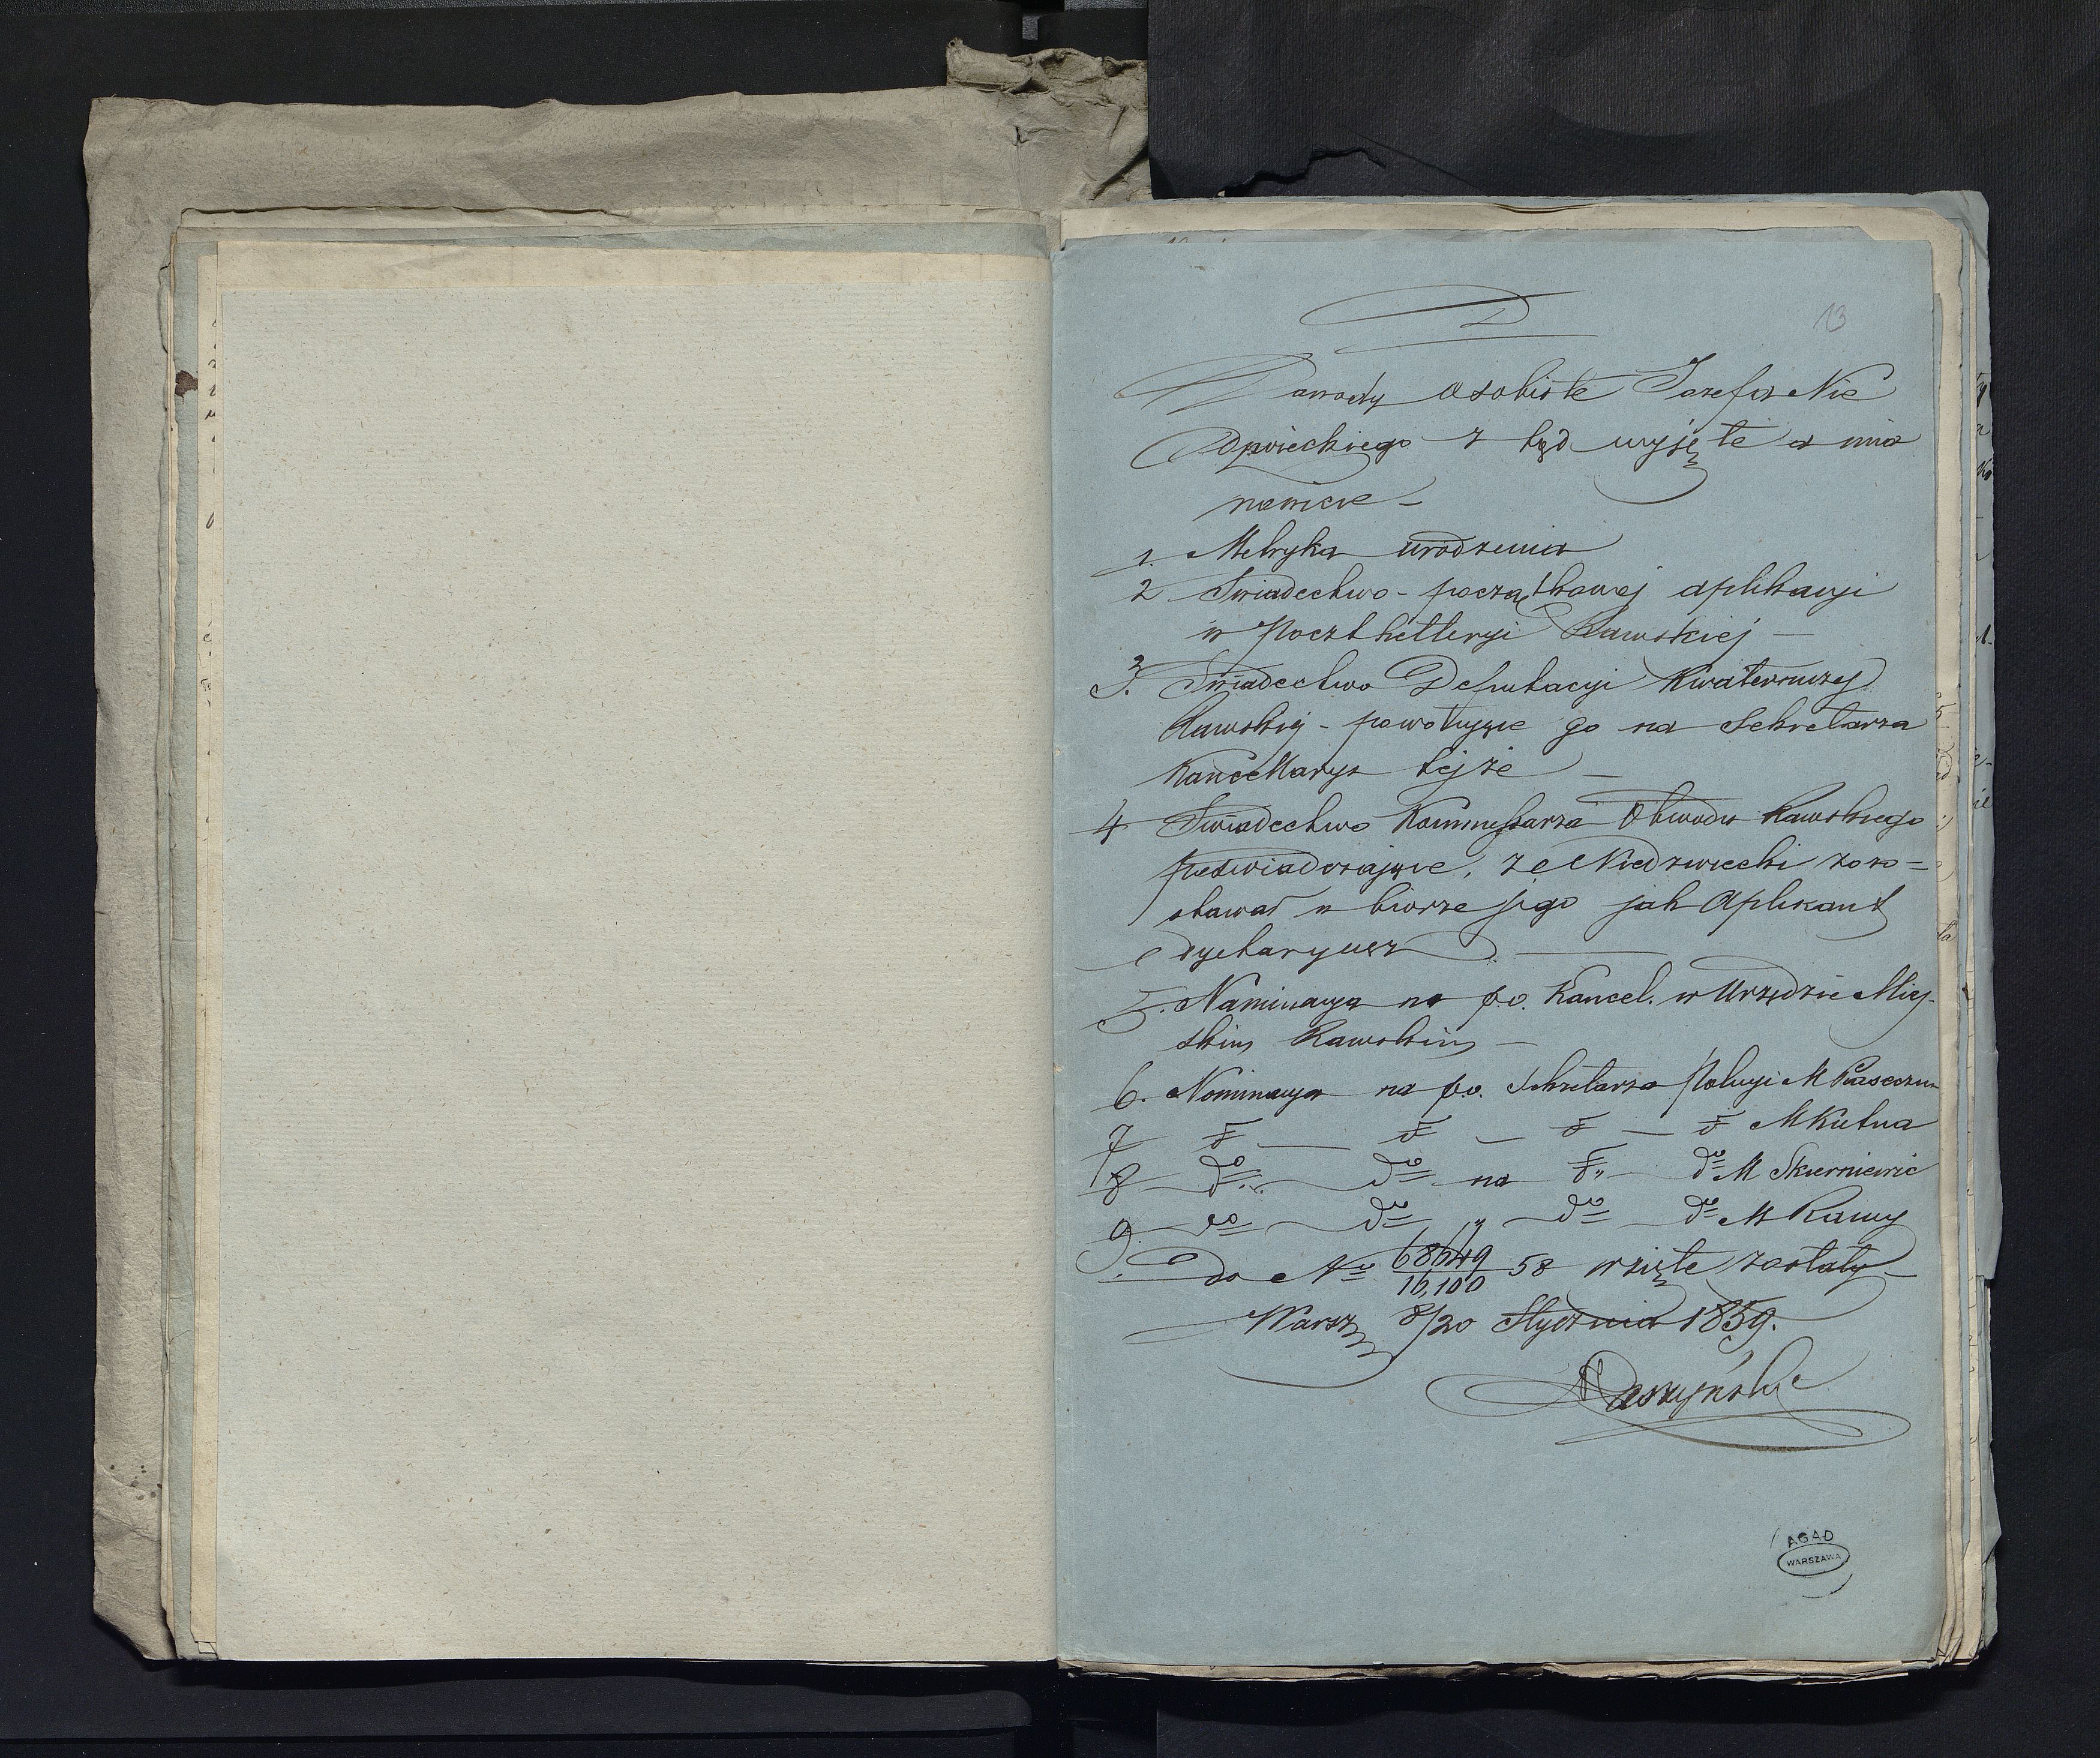 13
D
Dowody osobiste Jozefa Nie
dzwieckiego z tąd wyjęte a mia
nowicie –
1. Metryka urodzenia
2 Swiadectwo - początkowej aplikacyi
w Poczthalteryi Rawskiej –
3. Swiadectwo Deputacyi Kwaterniczej
Rawskiej - powołujące go na Sekretarza
Kancellaryi tejże –
4 Swiadectwo Kommissarza Obwodu Rawskiego
poswiadczające, że Niedzwiecki zozo=
stawał w biorze jego jak Aplikant
i dyetaryusz –
5. Nominacya na p.o. Kancel. w Urzędzie Miej-
skim Rawskim –
6. Nominacya na p.o. Sekretarza Policyi M Piaseczna
7 do — do — do — do M Kutna
8 do — do na do do M Skierniewic
9. do — do " do do M Rawy
do Nru 68649/16,100 58 wzięte zostały –
Warsz 8/20 Stycznia 1859.
AGAD
WARSZAWA